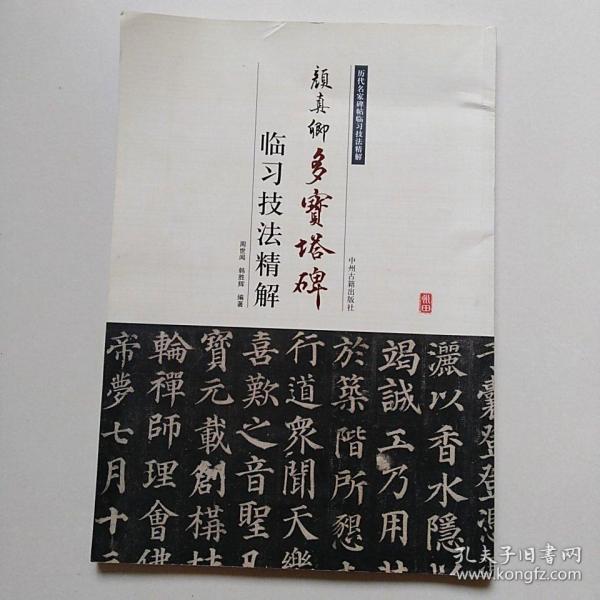 历代名家碑帖临习技法精解
颜真卿多寳塔碑
临习技法精解
周世闻 韩胜辉 编著
中州古籍出版社
囊登登憑
灑以香水隱
竭誠工乃用
於築階所懇
行道衆聞天樂
喜歎之音聖
寳元載創構
輪禪師理會佛
帝夢七月十三
孔夫子旧书网
www.kongfz.com